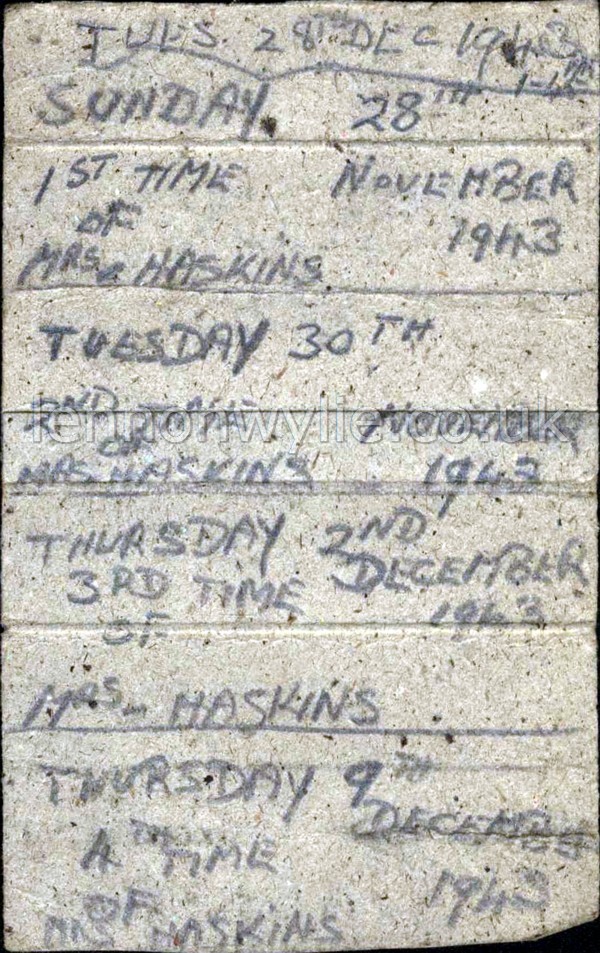 TUES. 28TH DEC 1943
SUNDAY 28TH
1ST TIME NOVEMBER
OF 1943
MRS. HASKINS
TUESDAY 30TH
2ND TIME NOVEMBER
OF
MRS HASKINS 1943
lennonwylie.co.uk
THURSDAY 2ND
3RD TIME DECEMBER
OF 1943
MRS. HASKINS
THURSDAY 9TH
DECEMBER
4TH TIME
OF 1943
MRS HASKINS